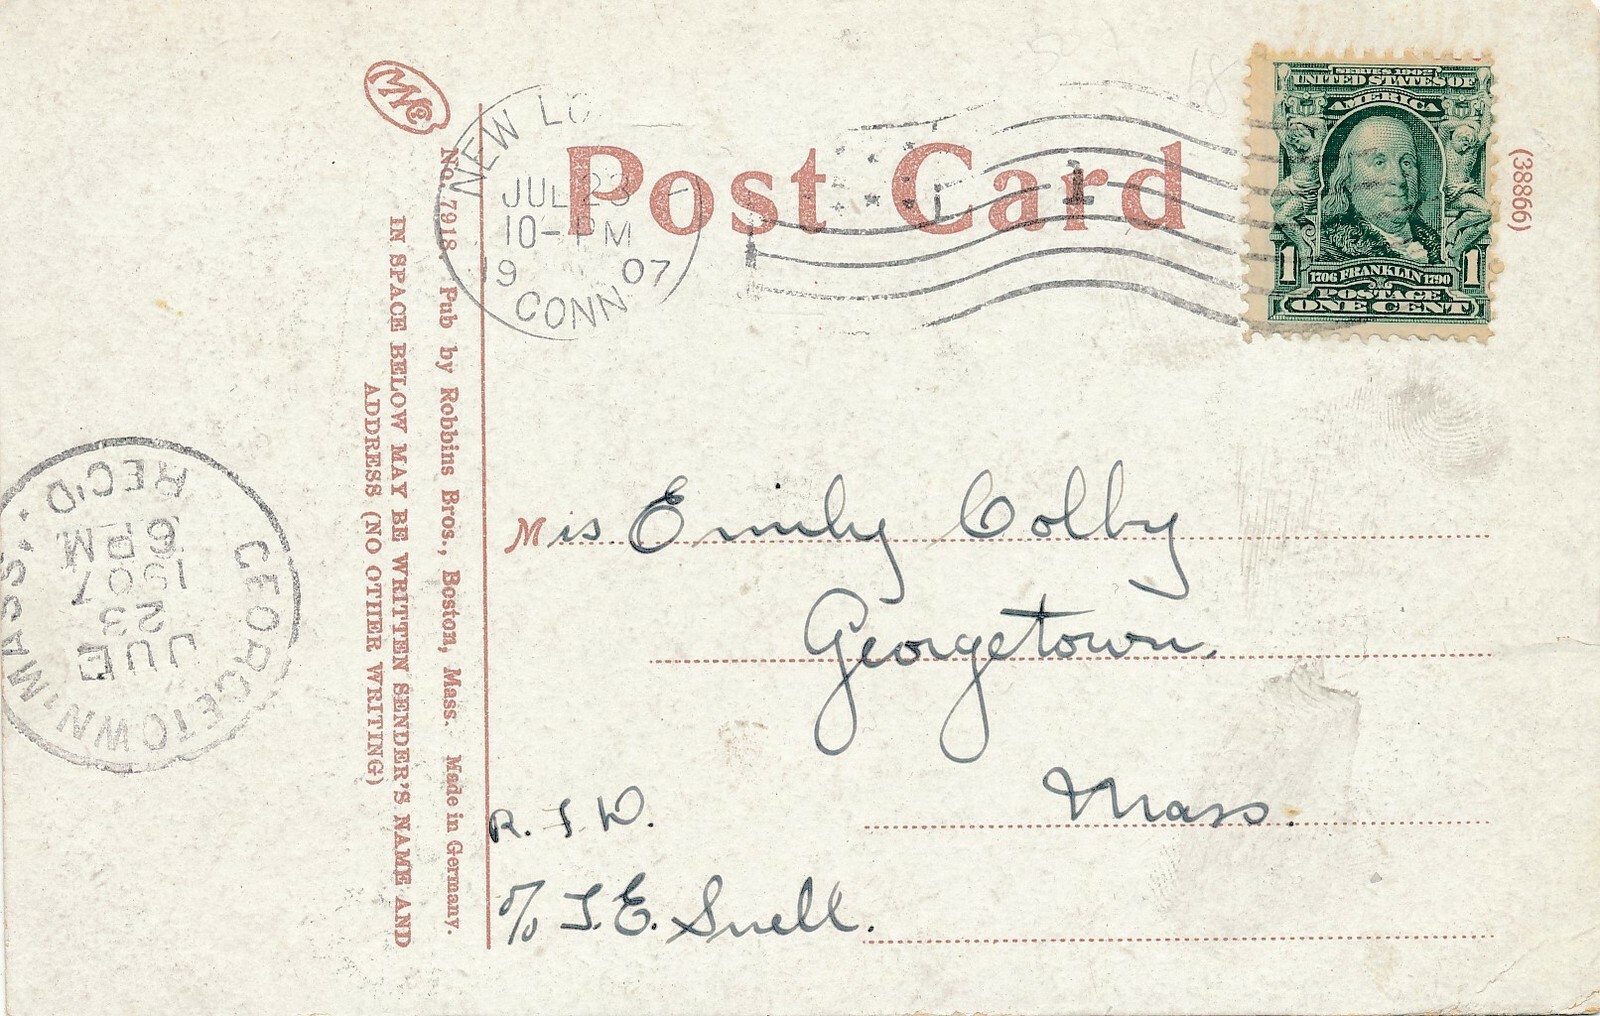 Post Card
NEW LO
JUL 23
10-PM
1907
CONN
1
SERIES 1902
UNITED STATES OF
AMERICA
1 1706 FRANKLIN 1790 1
POSTAGE
ONE CENT
(38866)
No. 7918. Pub by Robbins Bros., Boston, Mass. Made in Germany.
IN SPACE BELOW MAY BE WRITTEN SENDER'S NAME AND
ADDRESS (NO OTHER WRITING)
GEORGETOWN, MASS.
23
1907
6 PM
REC'D.
Mis Emily Colby
Georgetown.
Mass.
R.
c/o
Snell.